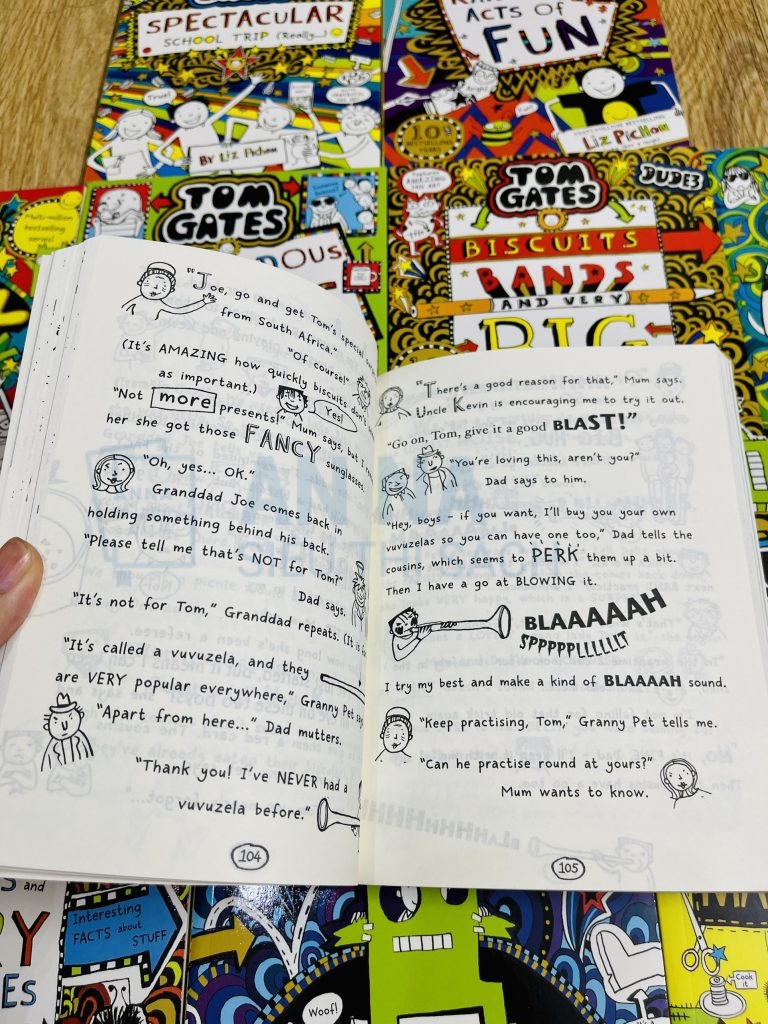 SPECTACULAR
SCHOOL TRIP (Really...)
True!
BY LIZ PICHON
ACTS OF
FUN
LIZ PICHON
Multi-million
bestselling
series!
TOM
GATES
TOM
GATES
DUDE3
BISCUITS
BANDS
AND VERY
BIG
"Joe, go and get Tom's special
from South Africa."
"Of course!"
(It's AMAZING how quickly biscuits don't
as important.)
Yes!
"Not more presents!" Mum says, but I
her she got those FANCY sunglasses.
"Oh, yes... OK."
Granddad Joe comes back in
holding something behind his back.
"Please tell me that's NOT for Tom?"
Dad says.
"It's not for Tom," Granddad repeats. (It is
"It's called a vuvuzela, and they
are VERY popular everywhere," Granny Pet
"Apart from here..." Dad mutters.
"Thank you! I've NEVER had a
vuvuzela before."
104
"There's a good reason for that," Mum says.
Uncle Kevin is encouraging me to try it out.
"Go on, Tom, give it a good BLAST!"
"You're loving this, aren't you?"
Dad says to him.
"Hey, boys – if you want, I'll buy you your own
vuvuzelas so you can have one too," Dad tells the
cousins, which seems to PERK them up a bit.
Then I have a go at BLOWING it.
BLAAAAAH
SPPPPPLLLLLLIT
I try my best and make a kind of BLAAAAH sound.
"Keep practising, Tom," Granny Pet tells me.
"Can he practise round at yours?"
Mum wants to know.
105
and
Interesting
FACTS about
STUFF
Woof!
Cook
it